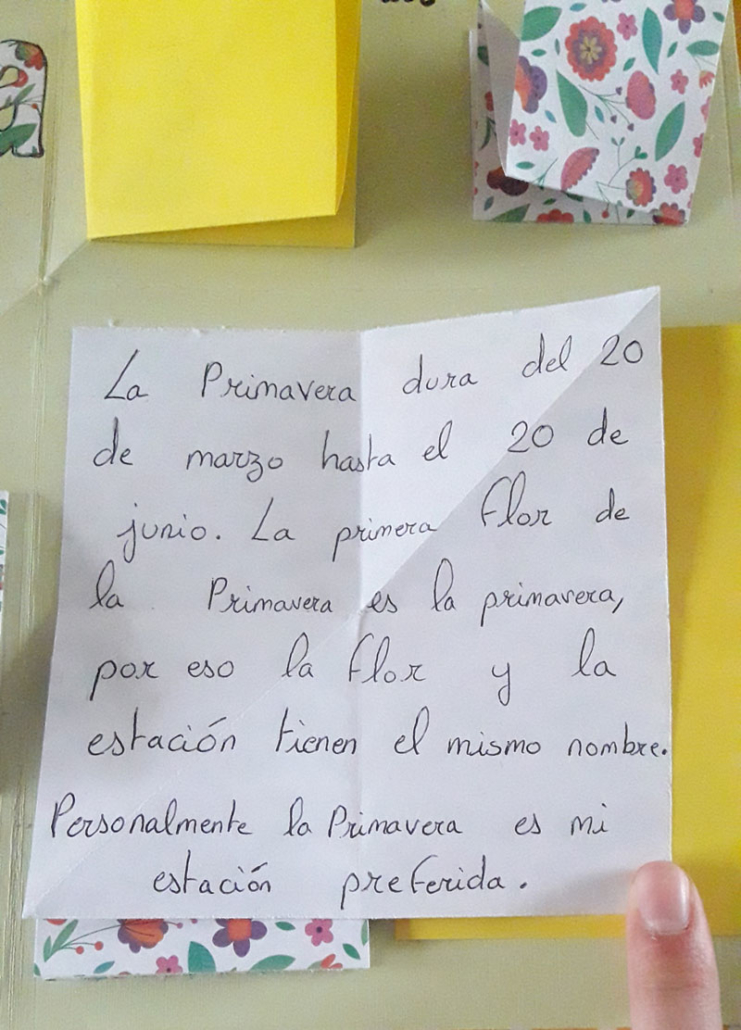 a
La Primavera dura del 20
de marzo hasta el 20 de
junio. La primera flor de
la Primavera es la primavera,
por eso la flor y la
estación tienen el mismo nombre.
Personalmente la Primavera es mi
estación preferida.